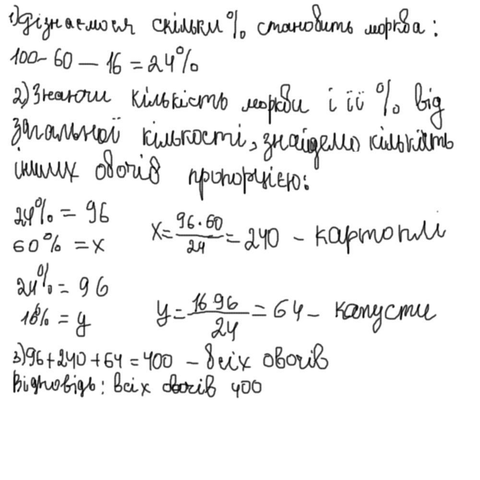 1) Дізнаємося скільки % становить морква:
100 - 60 - 16 = 24%
2) Знаючи кількість моркви і її % від
загальної кількості, знайдемо кількість
інших овочів пропорцією:
24% = 96
60% = x
x = 96·60/24 = 240 - картоплі
24% = 96
16% = y
y = 16 96/24 = 64 - капусти
3) 96 + 240 + 64 = 400 - всіх овочів
Відповідь: всіх овочів 400